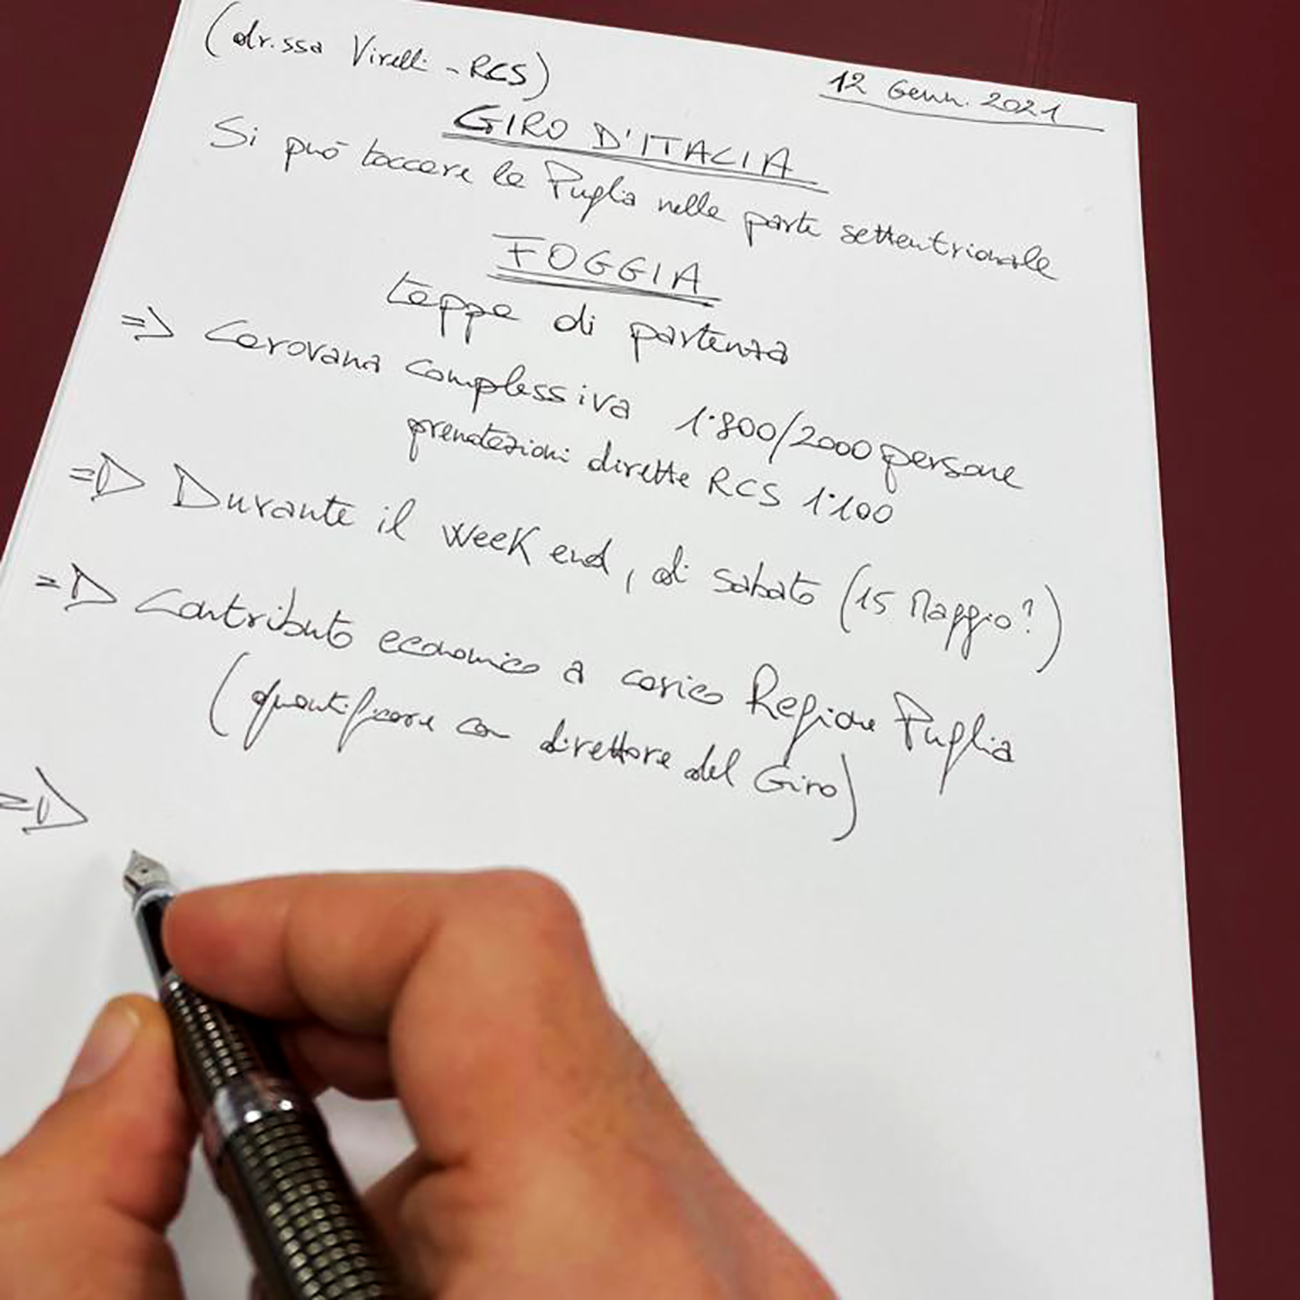 (dr.ssa Virelli - RCS)
12 Genn. 2021
GIRO D'ITALIA
Si può toccare la Puglia nella parte settentrionale
FOGGIA
tappa di partenza
=> Carovana complessiva 1.800/2000 persone
prenotazioni dirette RCS 1.100
=> Durante il week end, di sabato (15 Maggio?)
=> Contributo economico a carico Regione Puglia
(quantificare con direttore del Giro)
=>